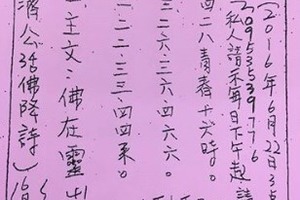 (2016年6月22日3点
0953539776
(私人請示每日下午起請
四二八青春十六時。
三二六三六四六六。
一一二二三三四四系。
主文：佛在靈山
濟公活佛降詩)